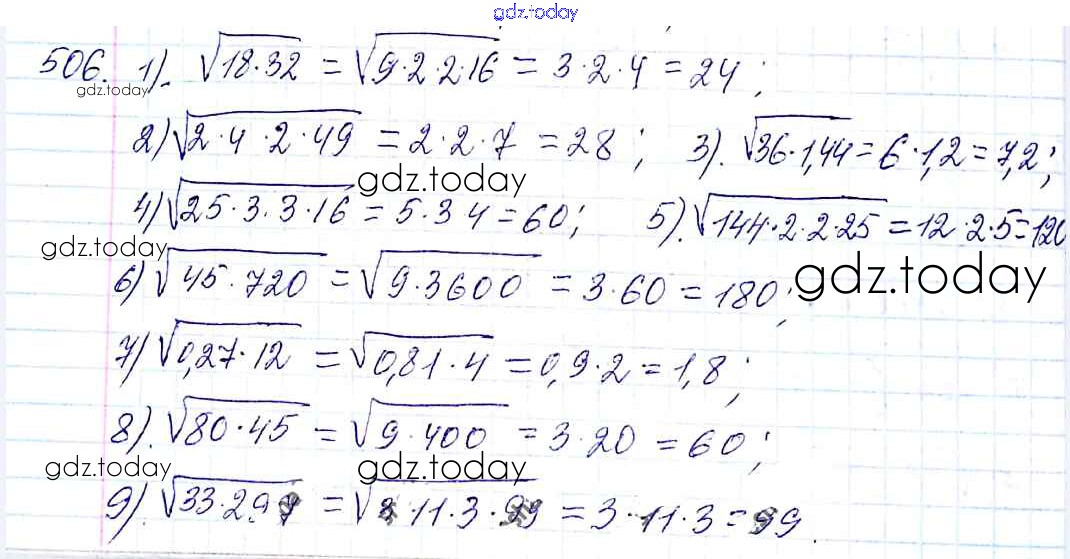 gdz.today
506. 1). √18·32 = √9·2·2·16 = 3·2·4 = 24;
gdz.today
2) √2·4·2·49 = 2·2·7 = 28; 3). √36·1,44 = 6·1,2 = 7,2;
gdz.today
4) √25·3·3·16 = 5·3 4 = 60; 5). √144·2·2·25 = 12·2·5 = 120
gdz.today
6) √45·720 = √9·3600 = 3·60 = 180;
gdz.today
7) √0,27·12 = √0,81·4 = 0,9·2 = 1,8;
8). √80·45 = √9·400 = 3·20 = 60;
gdz.today gdz.today
9). √33·297 = √ ·11·3· = 3·11·3 = 99.